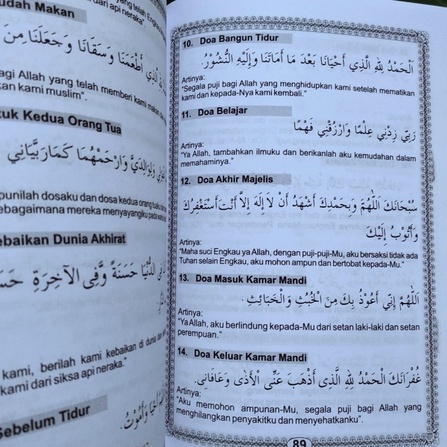 udah Makan
الَّذِي أَطْعَمَنَا وَسَقَانَا وَجَعَلَنَا مِنَ
bagi Allah yang telah memberi kami makan
kami muslim".
tuk Kedua Orang Tua
وَلِوَالِدَيَّ وَارْحَمْهُمَا كَمَارَبَّيَانِي
mpunilah dosaku dan dosa kedua orang tuaku
sebagaimana mereka menyayangiku pada
ebaikan Dunia Akhirat
الدُّنْيَا حَسَنَةً وَفِى الْاٰخِرَةِ
kami, berilah kami kebaikan di dunia dan
kami dari siksa api neraka".
Sebelum Tidur
10. Doa Bangun Tidur
اَلْحَمْدُ لِلّٰهِ الَّذِي أَحْيَانَا بَعْدَ مَا أَمَاتَنَا وَإِلَيْهِ النُّشُوْرُ.
Artinya:
"Segala puji bagi Allah yang menghidupkan kami setelah mematikan
kami dan kepada-Nya kami kembali."
11. Doa Belajar
رَبِّي زِدْنِي عِلْمًا وَارْزُقْنِي فَهْمًا
Artinya:
"Ya Allah, tambahkan ilmuku dan berikanlah aku kemudahan dalam
memahaminya."
12. Doa Akhir Majelis
سُبْحَانَكَ اللّٰهُمَّ وَبِحَمْدِكَ أَشْهَدُ أَنْ لَا إِلٰهَ إِلَّا أَنْتَ أَسْتَغْفِرُكَ
وَأَتُوْبُ إِلَيْكَ
Artinya:
"Maha suci Engkau ya Allah, dengan puji-puji-Mu, aku bersaksi tidak ada
Tuhan selain Engkau, aku mohon ampun dan bertobat kepada-Mu."
13. Doa Masuk Kamar Mandi
اَللّٰهُمَّ إِنِّي أَعُوْذُ بِكَ مِنَ الْخُبُثِ وَالْخَبَائِثِ.
Artinya:
"Ya Allah, aku berlindung kepada-Mu dari setan laki-laki dan setan
perempuan."
14. Doa Keluar Kamar Mandi
غُفْرَانَكَ الْحَمْدُ لِلّٰهِ الَّذِي أَذْهَبَ عَنِّي الْأَذَى وَعَافَانِي.
Artinya:
"Aku memohon ampunan-Mu, segala puji bagi Allah yang
menghilangkan penyakitku dan menyehatkanku".
89